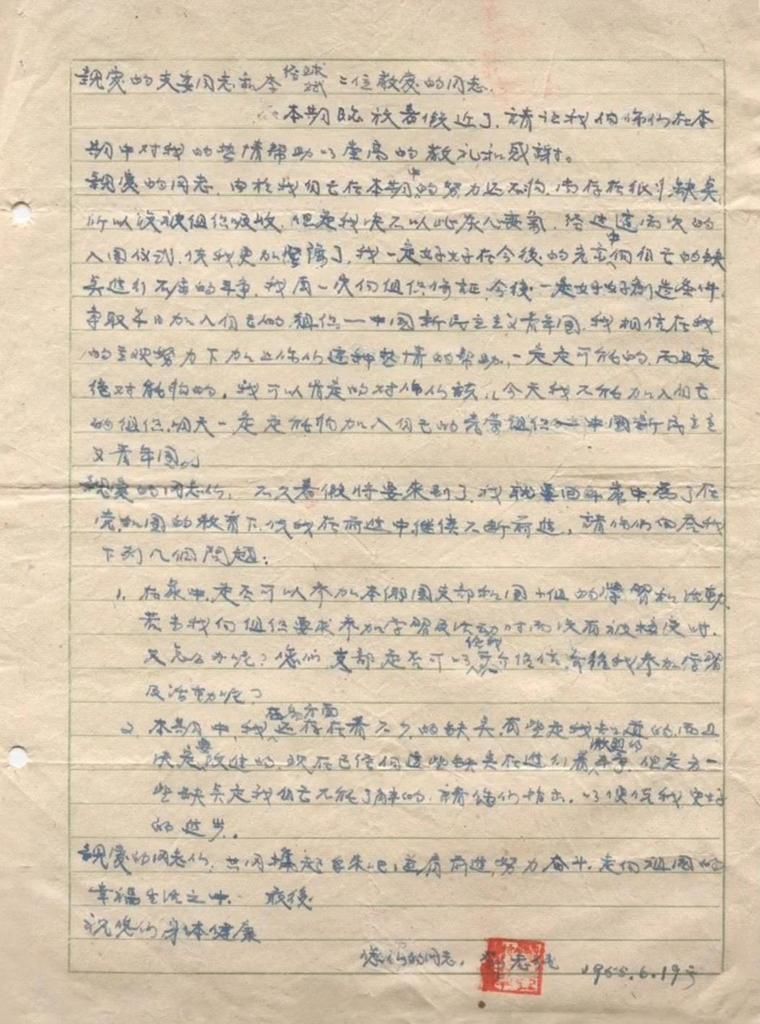 親愛的夫委同志和李 二位敬愛的同志.
本期既放暑假近了, 請让我向你们在本
期中对我的热情帮助以崇高的敬礼和感謝。
親愛的同志, 由於我自己在本期中的努力还不夠, 尚存在很多缺点
所以没被組织吸收, 但是我决不以此灰心喪氣, 经过這兩次的
入团仪式, 使我更加堅强了, 我一定好好在今後的 中向自己的缺
点進行不断的斗争, 我再一次向組织保証, 今後一定好好創造条件
争取早日加入自己的組织—中国新民主主义青年团, 我相信在我
的 努力下加上你们這种热情的帮助, 一定是可能的, 而且是
绝对能夠的, 我可以肯定的对你们說: 今天我不能加入自己
的組织, 明天一定是能夠加入自己的 組织—中国新民主主
义青年团。
親愛的同志们, 不久暑假将要来到了, 我就要回 家中, 爲了在
党和团的教育下, 使我在前進中继续不断前進, 請你们回答我
下列几個問題:
1. 在家中, 是否可以参加本鄉团支部和团小组的学習和活動,
若当我向組织要求参加学習及活动时而没有被接受时,
又怎么办呢? 您们支部是否可以 介绍信, 介绍我参加学習
及活動呢?
2. 本期中, 我在各方面还存在着不少的缺点, 有些是我知道的, 而且
决定要改進的, 现在已经向這些缺点在進行着激烈的斗争, 但是有一
些缺点是我自己不能了解的, 請你们指出, 以便使我更好
的进步。
親愛的同志们, 共同携起手来吧, 並肩前進, 努力奋斗, 走向祖国的
幸福生活之中. 最後
祝您们身体健康
您们的同志, 1955.6.19号